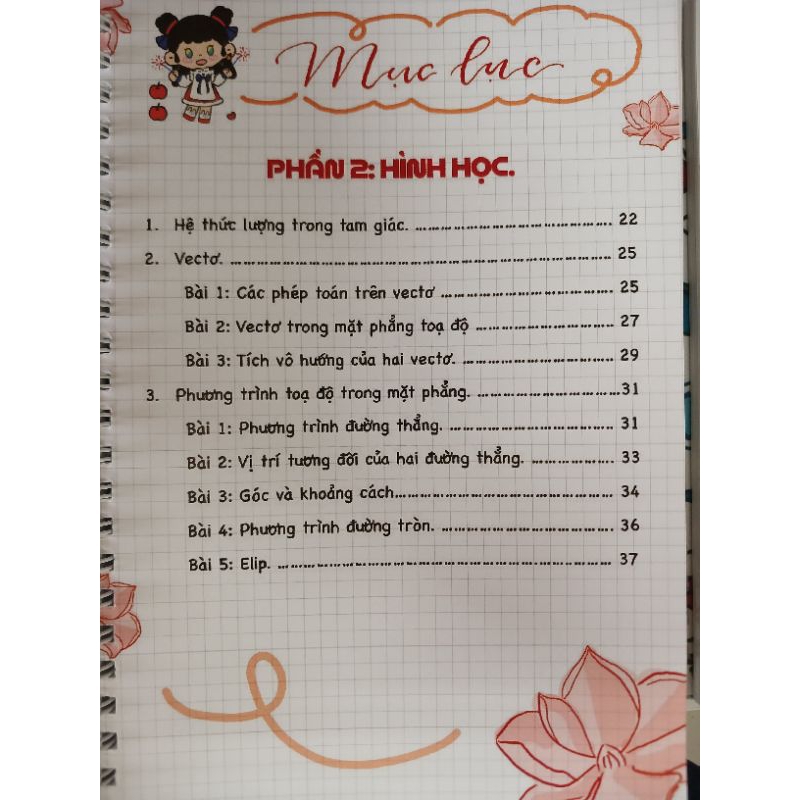 Mục lục
PHẦN 2: HÌNH HỌC.
1. Hệ thức lượng trong tam giác. ........................................ 22
2. Vectơ. ........................................ 25
Bài 1: Các phép toán trên vectơ ........................................ 25
Bài 2: Vectơ trong mặt phẳng toạ độ ........................................ 27
Bài 3: Tích vô hướng của hai vectơ. ........................................ 29
3. Phương trình toạ độ trong mặt phẳng. ........................................31
Bài 1: Phương trình đường thẳng. ........................................ 31
Bài 2: Vị trí tương đối của hai đường thẳng. ........................................ 33
Bài 3: Góc và khoảng cách........................................ 34
Bài 4: Phương trình đường tròn. ........................................ 36
Bài 5: Elip. ........................................ 37